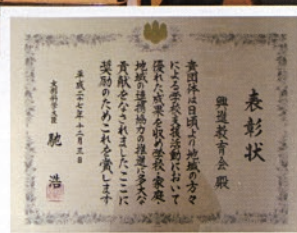 表彰状
興道教育会 殿
貴団体は日頃より地域の方々
による学校支援活動において
優れた成果を収め学校・家庭・
地域の連携協力の推進に多大な
貢献をなされましたここに
奨励のためこれを賞します
平成二十七年十二月三日
文部科学大臣 馳 浩